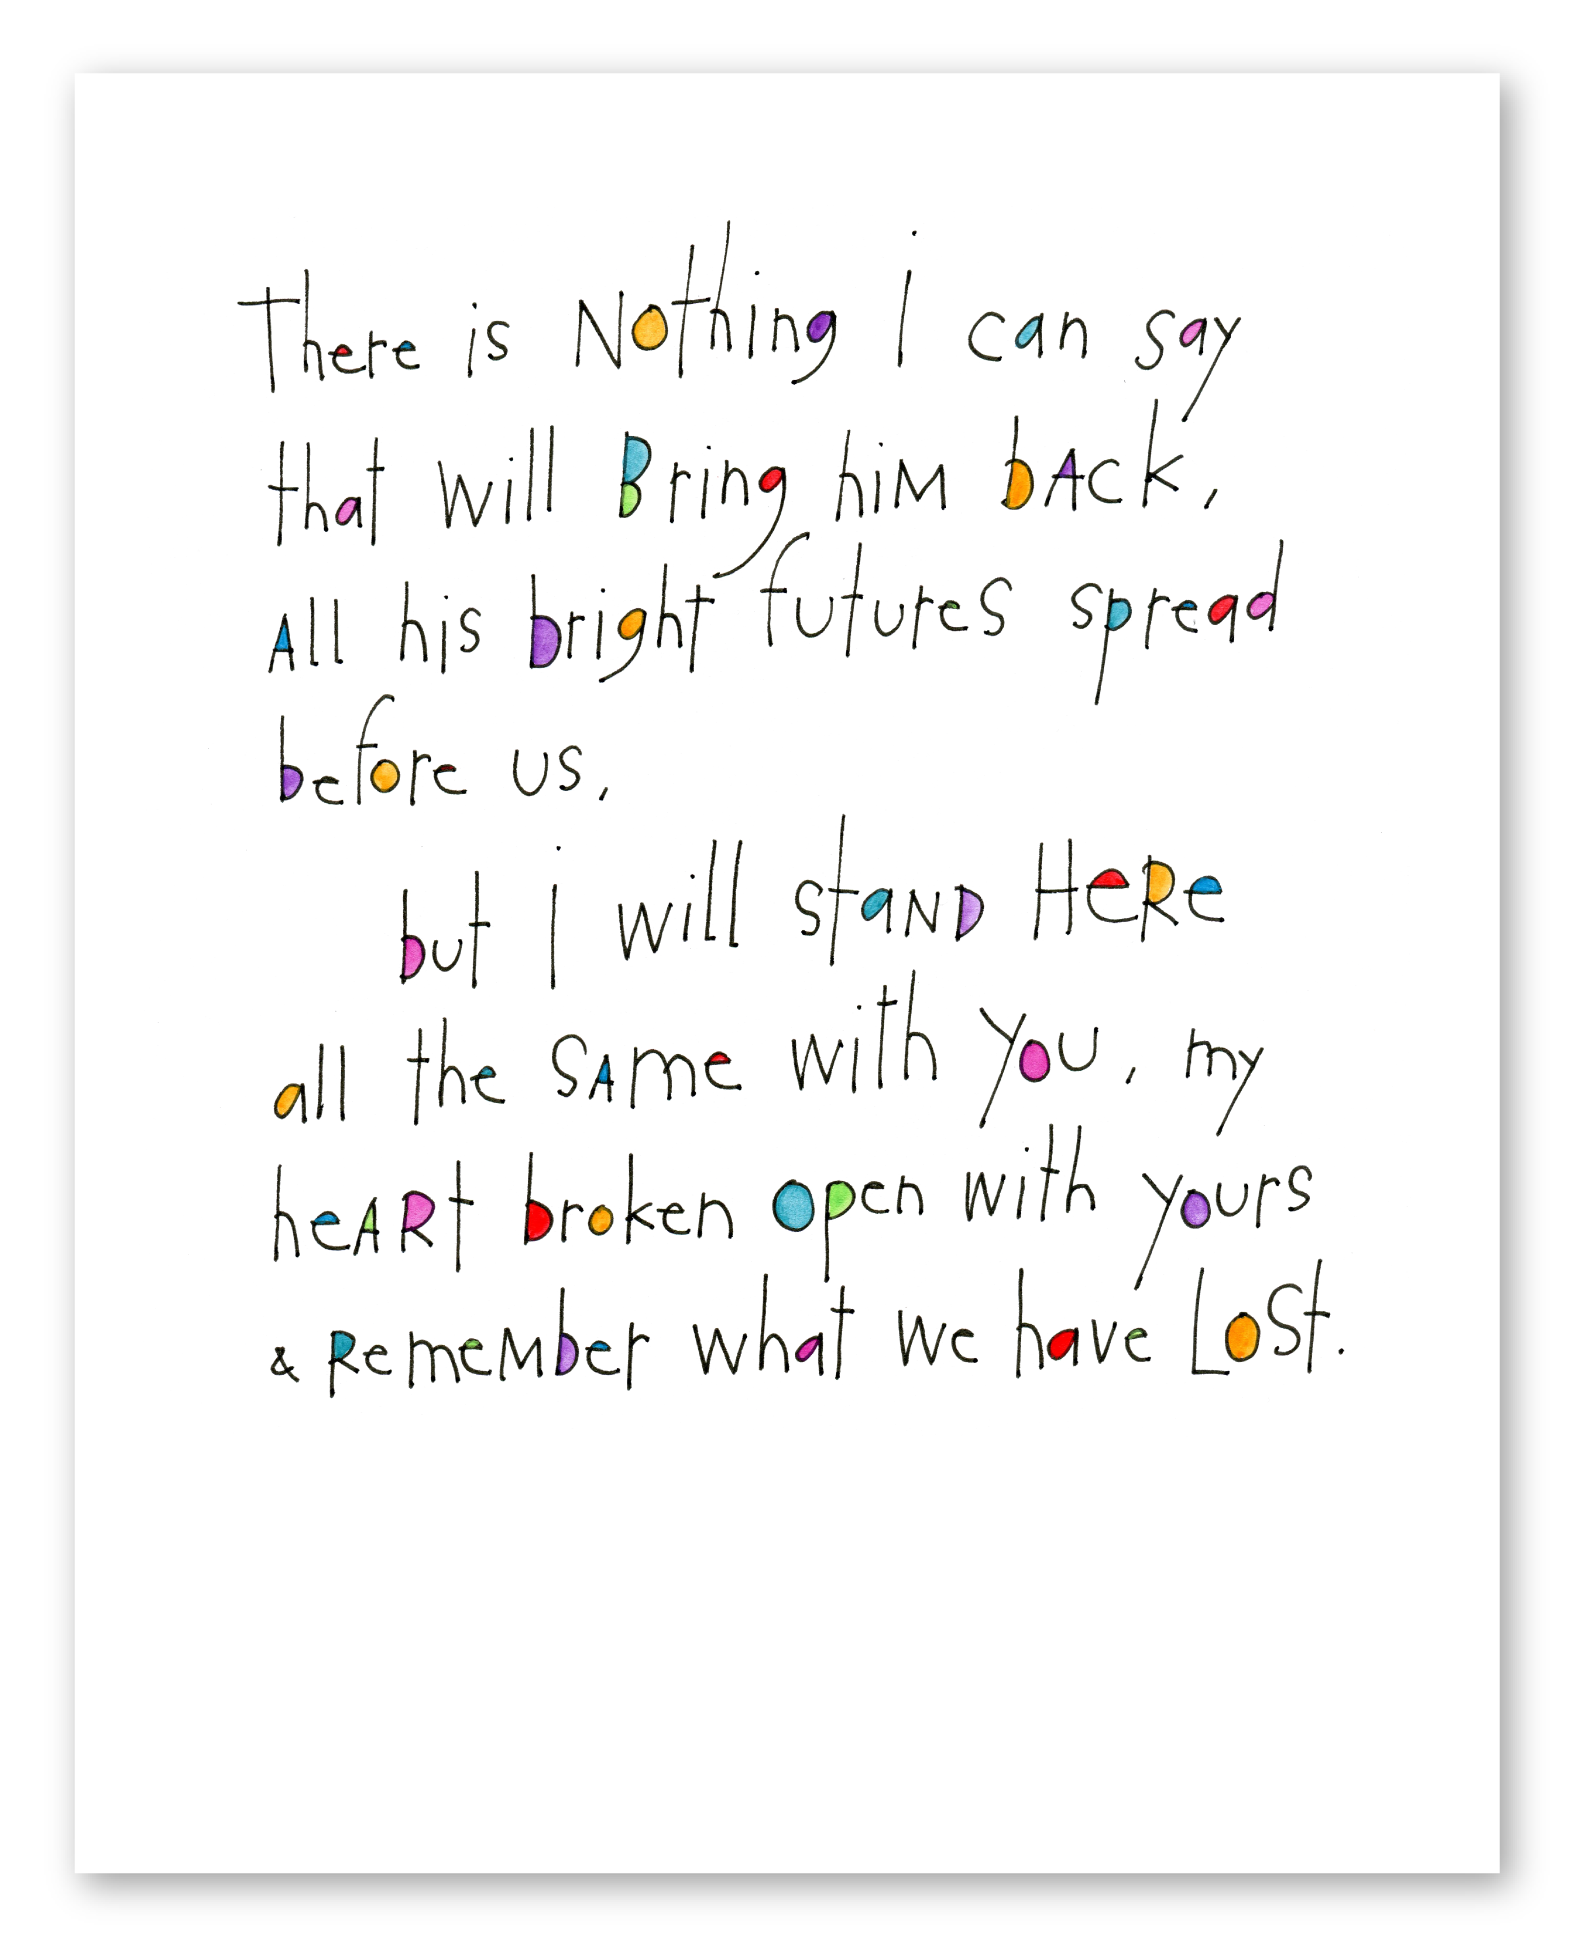 There is Nothing I can say
that will Bring hiM bAck,
All his bright futures spread
before us,
but I will staND HeRe
all the SAme with you, my
heARt broken open with yours
& RemeMber what we have LoSt.